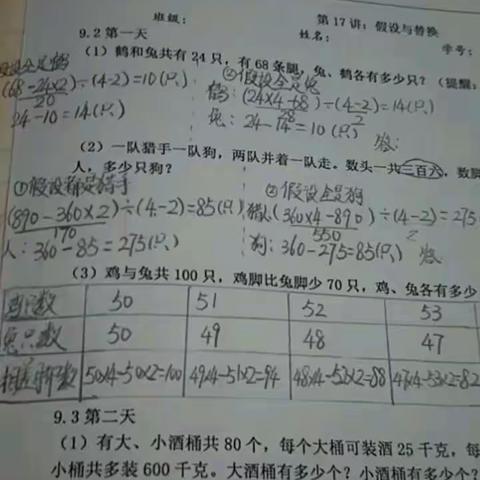 班级：
第 17 讲：假设与替换
9.2 第一天
姓名：
学号：
（1）鹤和兔共有 24 只，有 68 条腿，兔、鹤各有多少只？（提醒：
设全是鹤
(68-24×2)÷(4-2)=10(只)
20
24-10=14(只)
②假设全是兔
鹤：(24×4-68)÷(4-2)=14(只)
28 2
兔：24-14=10(只)
（2）一队猎手一队狗，两队并着一队走。数头一共三百六，数脚
人，多少只狗？
①假设都是猎手
(890-360×2)÷(4-2)=85(只)
170
人：360-85=275(只)
②假设全是狗
猎人(360×4-890)÷(4-2)=275
550 2
狗：360-275=85(只)
（3）鸡与兔共 100 只，鸡脚比兔脚少 70 只，鸡、兔各有多少
鸡只数 50 51 52 53
兔只数 50 49 48 47
50×4-50×2=100 49×4-51×2=94 48×4-52×2=88 47×4-53×2=82
9.3 第二天
（1）有大、小酒桶共 80 个，每个大桶可装酒 25 千克，每
小桶共多装 600 千克。大酒桶有多少个？小酒桶有多少个？